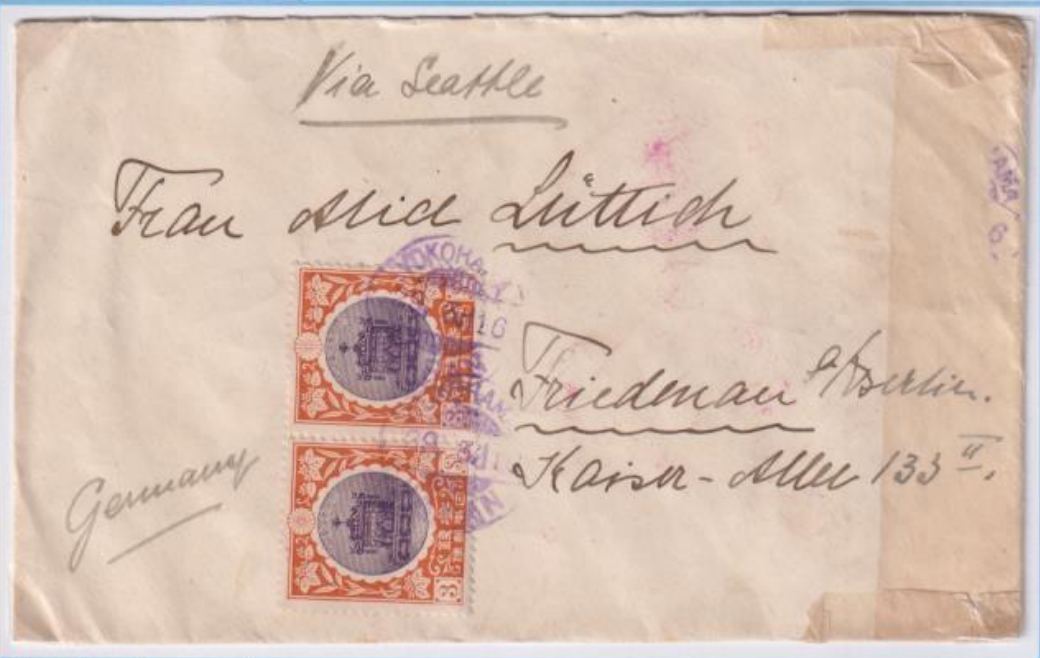 Via Seattle
Frau Alid Lüttich
YOKOHA
16
Friedenau b/Berlin.
Kaiser-Allee 133 II.
Germany
AMA
6
3